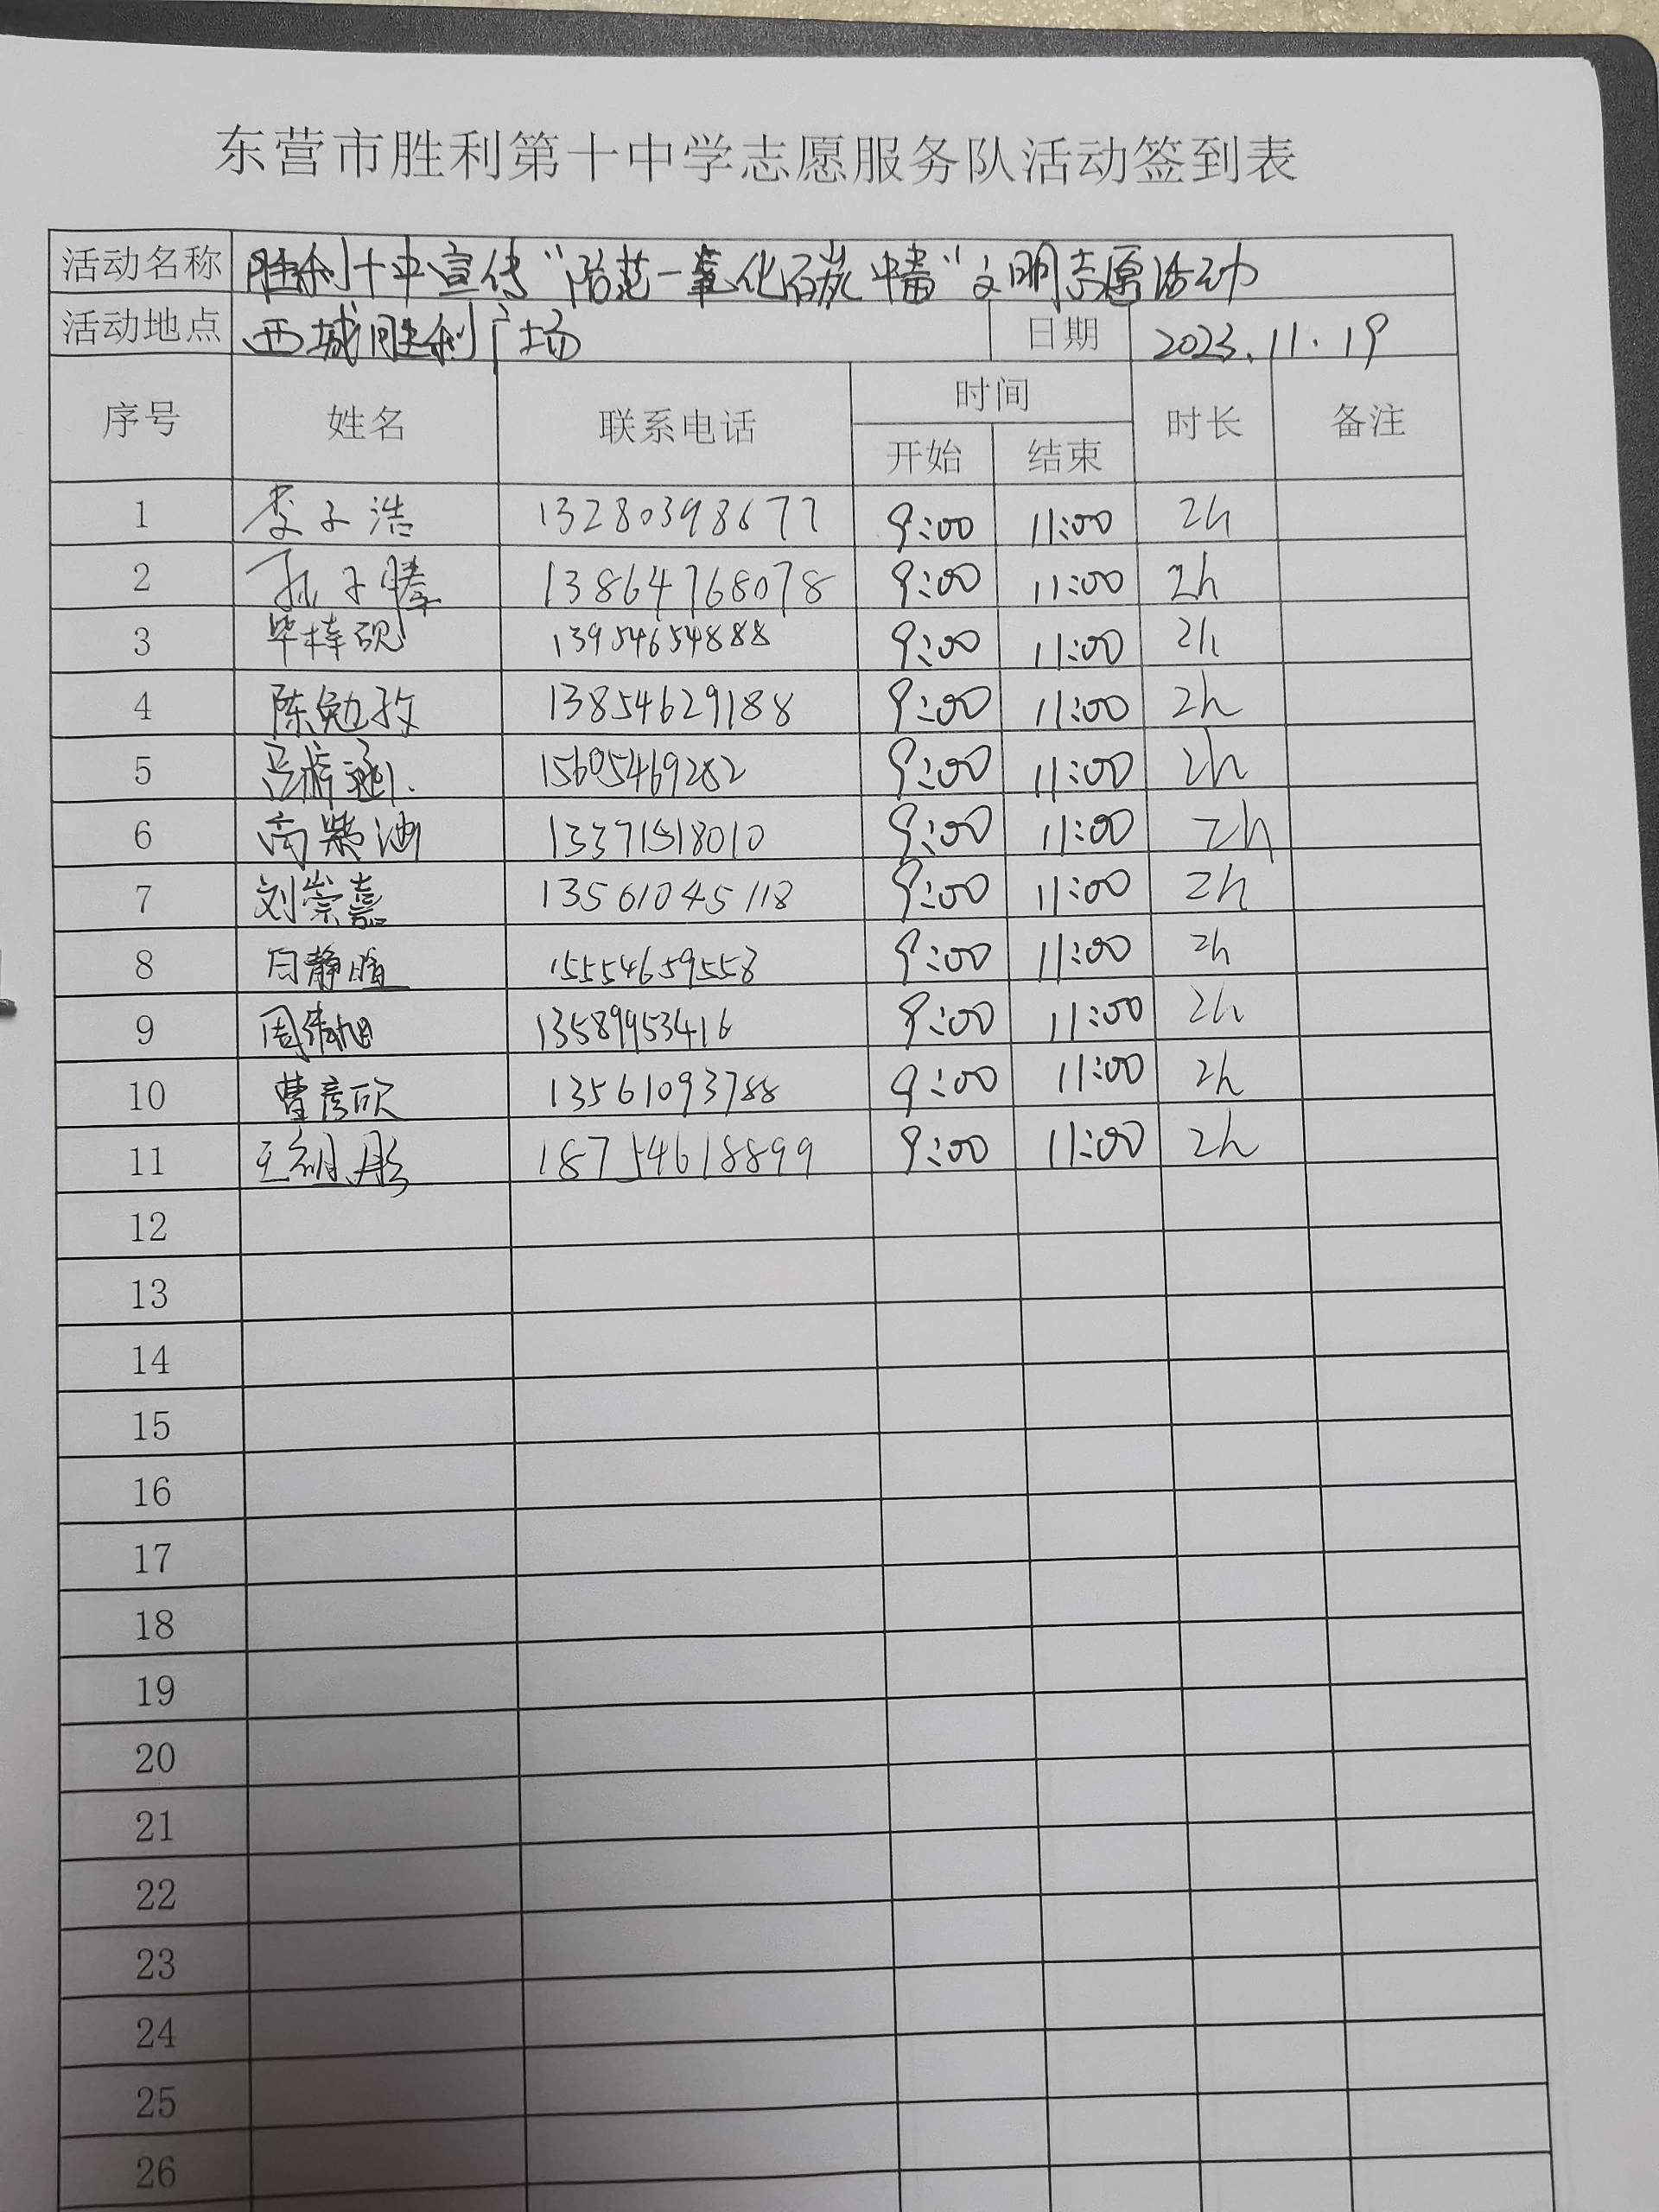 东营市胜利第十中学志愿服务队活动签到表
活动名称 胜利十中宣传“防范一氧化碳中毒”文明志愿活动
活动地点 西城胜利广场 日期 2023.11.19
序号 姓名 联系电话 时间 时长 备注
开始 结束
1 李子浩 13280398677 9:00 11:00 2h
2 孙子腾 13864768078 9:00 11:00 2h
3 毕梓砚 13954654888 9:00 11:00 2h
4 陈勉孜 13854629188 9:00 11:00 2h
5 吕梓涵 15605469282 9:00 11:00 2h
6 高 13371518010 9:00 11:00 2h
7 刘崇嘉 13561045118 9:00 11:00 2h
8 闫静暄 15554659558 9:00 11:00 2h
9 周 13589953416 9:00 11:00 2h
10 曹彦欣 13561093788 9:00 11:00 2h
11 王 彤 18754618899 9:00 11:00 2h
12
13
14
15
16
17
18
19
20
21
22
23
24
25
26